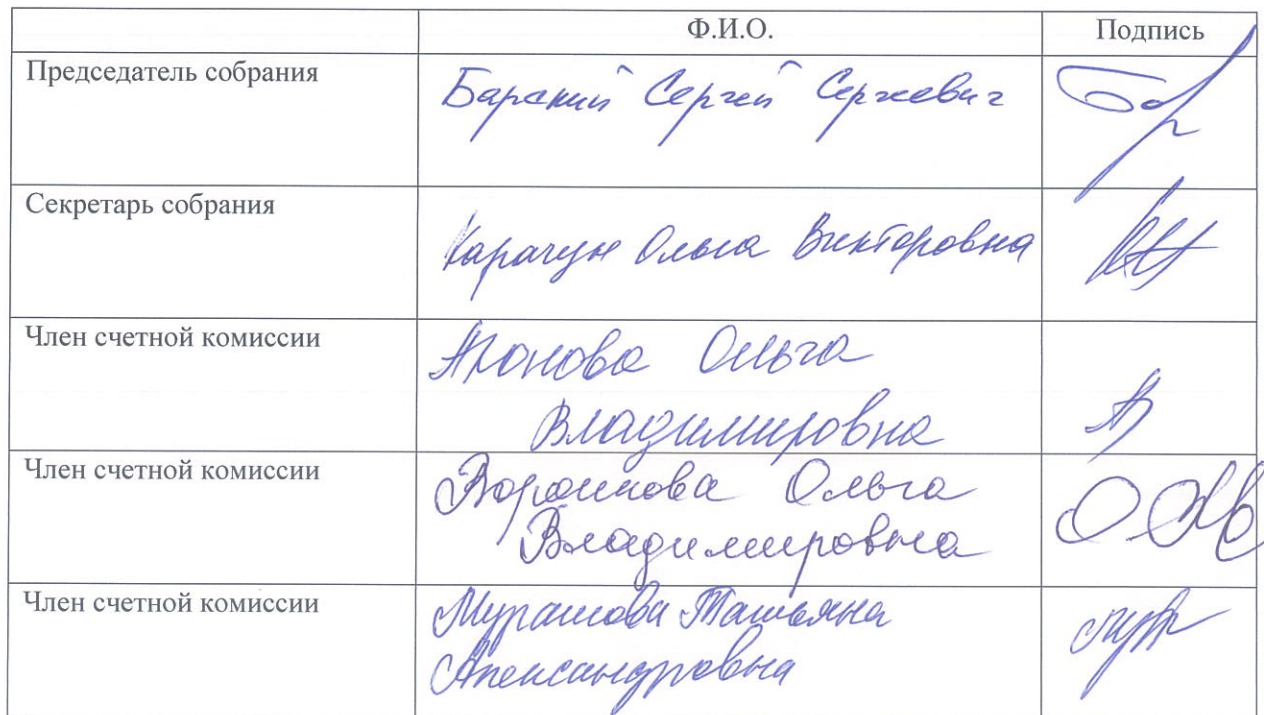 Ф.И.О. Подпись
Председатель собрания Барский Сергей Сергеевич
Секретарь собрания Карачун Ольга Викторовна
Член счетной комиссии Ольга
Владимировна
Член счетной комиссии Ольга
Владимировна
Член счетной комиссии Мурашова Татьяна
Александровна